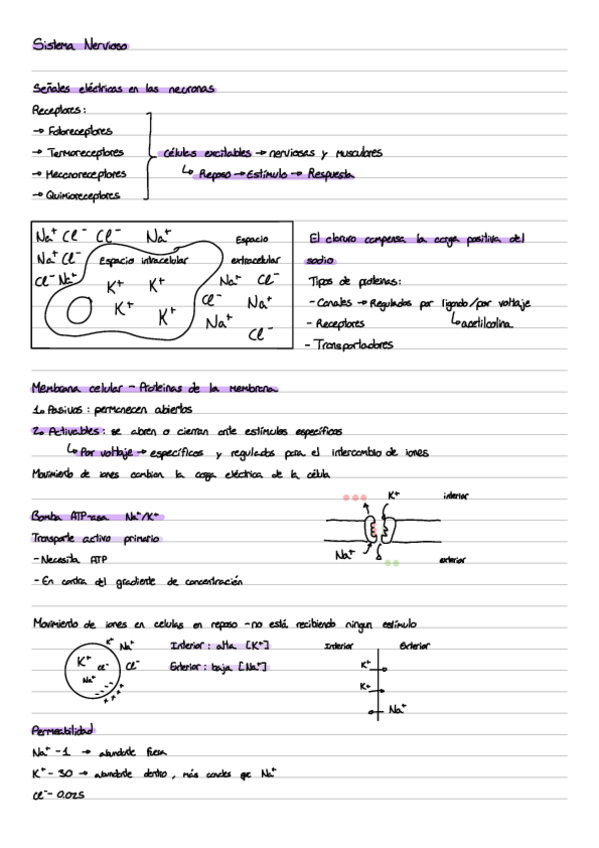 Sistema Nervioso
Señales eléctricas en las neuronas
Receptores:
→ Fotoreceptores
→ Termoreceptores
→ Mecanoreceptores
→ Quimioreceptores
Células excitables → nerviosas y musculares
↳ Reposo → Estímulo → Respuesta
Na⁺ Cl⁻ Cl⁻ Na⁺ Espacio
Na⁺ Cl⁻ Espacio intracelular extracelular
Cl⁻ Na⁺ K⁺ K⁺ Na⁺ Cl⁻
K⁺ K⁺ Cl⁻ Na⁺
Na⁺ Cl⁻
El cloruro compensa la carga positiva del
sodio
Tipos de proteinas:
- Canales → Regulados por ligando/por voltaje
↳ acetilcolina
- Receptores
- Transportadores
Membrana celular - Proteinas de la membrana
1. Pasivos: permanecen abiertos
2. Activables: se abren o cierran ante estímulos específicos
↳ Por voltaje → específicos y regulados para el intercambio de iones
Movimiento de iones cambian la carga eléctrica de la célula
Bomba ATP-asa Na⁺/K⁺
Transporte activo primario
- Necesita ATP
- En contra del gradiente de concentración
K⁺ interior
Na⁺ exterior
Movimiento de iones en celulas en reposo - no está recibiendo ningun estímulo
K⁺ Na⁺
K⁺ Cl⁻ Cl⁻
Na⁺
Interior: alta [K⁺]
Exterior: baja [Na⁺]
Interior Exterior
K⁺
K⁺
Na⁺
Permeabilidad
Na⁺ - 1 → abundante fuera
K⁺ - 30 → abundante dentro, más canales que Na⁺
Cl⁻ - 0.025